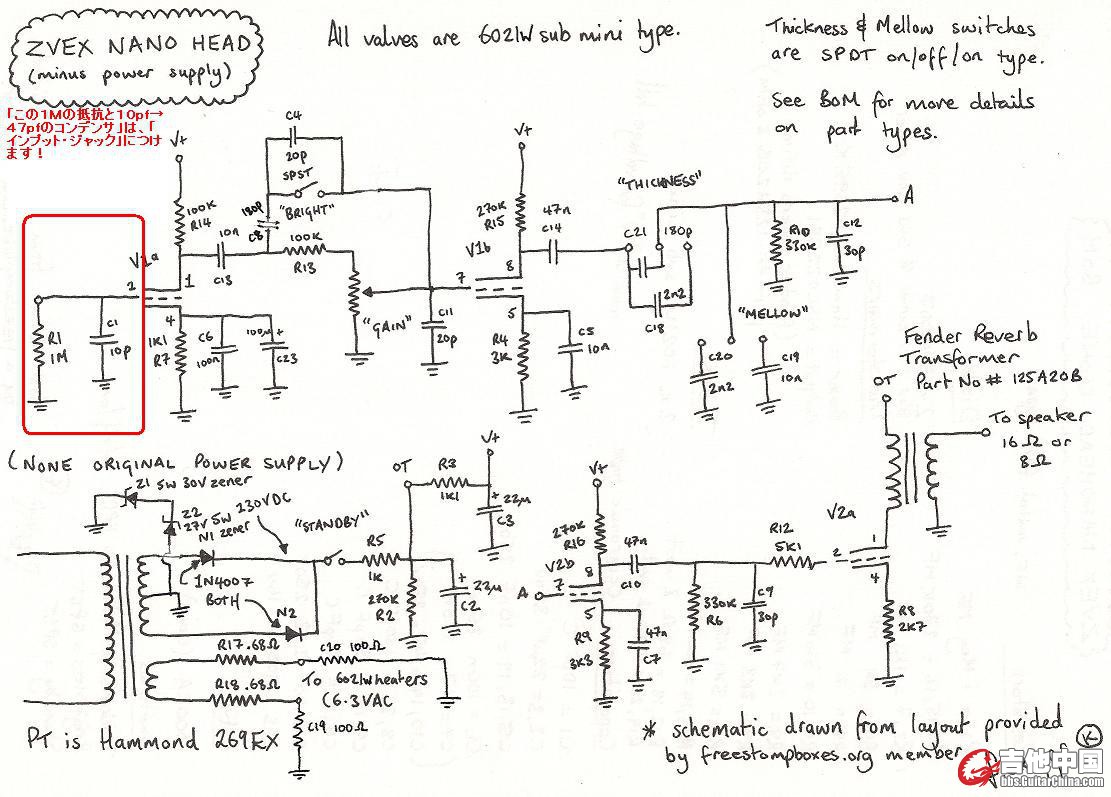 ZVEX NANO HEAD
(minus power supply)
All valves are 6021W sub mini type.
Thickness & Mellow switches
are SPDT on/off/on type.
See BOM for more details
on part types.
「この1Mの抵抗と10pf→
47pfのコンデンサ」は、「
インプット・ジャック」につけ
ます！
V+
100K
R14
C4
20p
SPST
"BRIGHT"
180p
C8
10n
C13
100K
R13
"GAIN"
V1a
2
1
4
R1
1M
C1
10p
1K1
R7
C6
100n
100µ
+
C23
C11
20p
V+
270K
R15
V1b
7
8
5
R4
3K
C5
10n
47n
C14
"THICKNESS"
C21
180p
2n2
C18
A
R10
330K
C12
30p
"MELLOW"
C20
2n2
C19
10n
Fender Reverb
Transformer
Part No # 125A20B
OT
To speaker
16Ω or
8Ω
(NONE ORIGINAL POWER SUPPLY)
Z1 5W 30V zener
Z2
27V 5W
zener
N1
230VDC
"STANDBY"
1N4007
BOTH
N2
R5
1K
OT
R3
1K1
V+
+
22µ
C3
270K
R2
+
22µ
C2
R17 .68Ω
C20 100Ω
R18 .68Ω
To 6021W heaters
(6.3VAC
C19 100Ω
PT is Hammond 269EX
V+
270K
R16
V2b
A
7
8
5
R9
3K3
47n
C7
47n
C10
330K
R6
C9
30p
R12
5K1
V2a
2
1
4
R8
2K7
* schematic drawn from layout provided
by freestompboxes.org member
K
吉他中国
bbs.GuitarChina.com